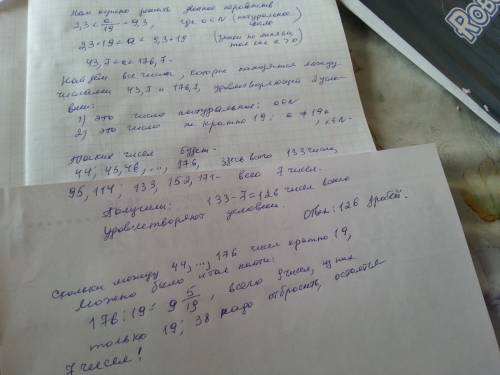 Нам нужно решить двойное неравенство
2,3 < a/19 < 9,3, где a∈N (натуральное число)
2,3·19 < a < 9,3·19 (знаки не меняем, так как 19 > 0)
43,7 < a < 176,7.
Найдём все числа, которые находятся между
числами 43,7 и 176,7, удовлетворяющей 2 усло-
виям:
1) это число натуральное: a∈N
2) это число не кратно 19:
Таких чисел будет:
44, 45, 46, ..., 176, здесь всего 133 числа,
95, 114; 133, 152, 171 - всего 7 чисел.
Получили: 133-7=126 чисел всего
удовлетворяют условию.
Ответ: 126 дробей.
Сколько между 44, ..., 176 чисел кратно 19,
можно было и так найти:
176:19 = 9 5/19, всего 9 чисел, из них
только 19; 38 надо отбросить, останется
7 чисел!
ROB